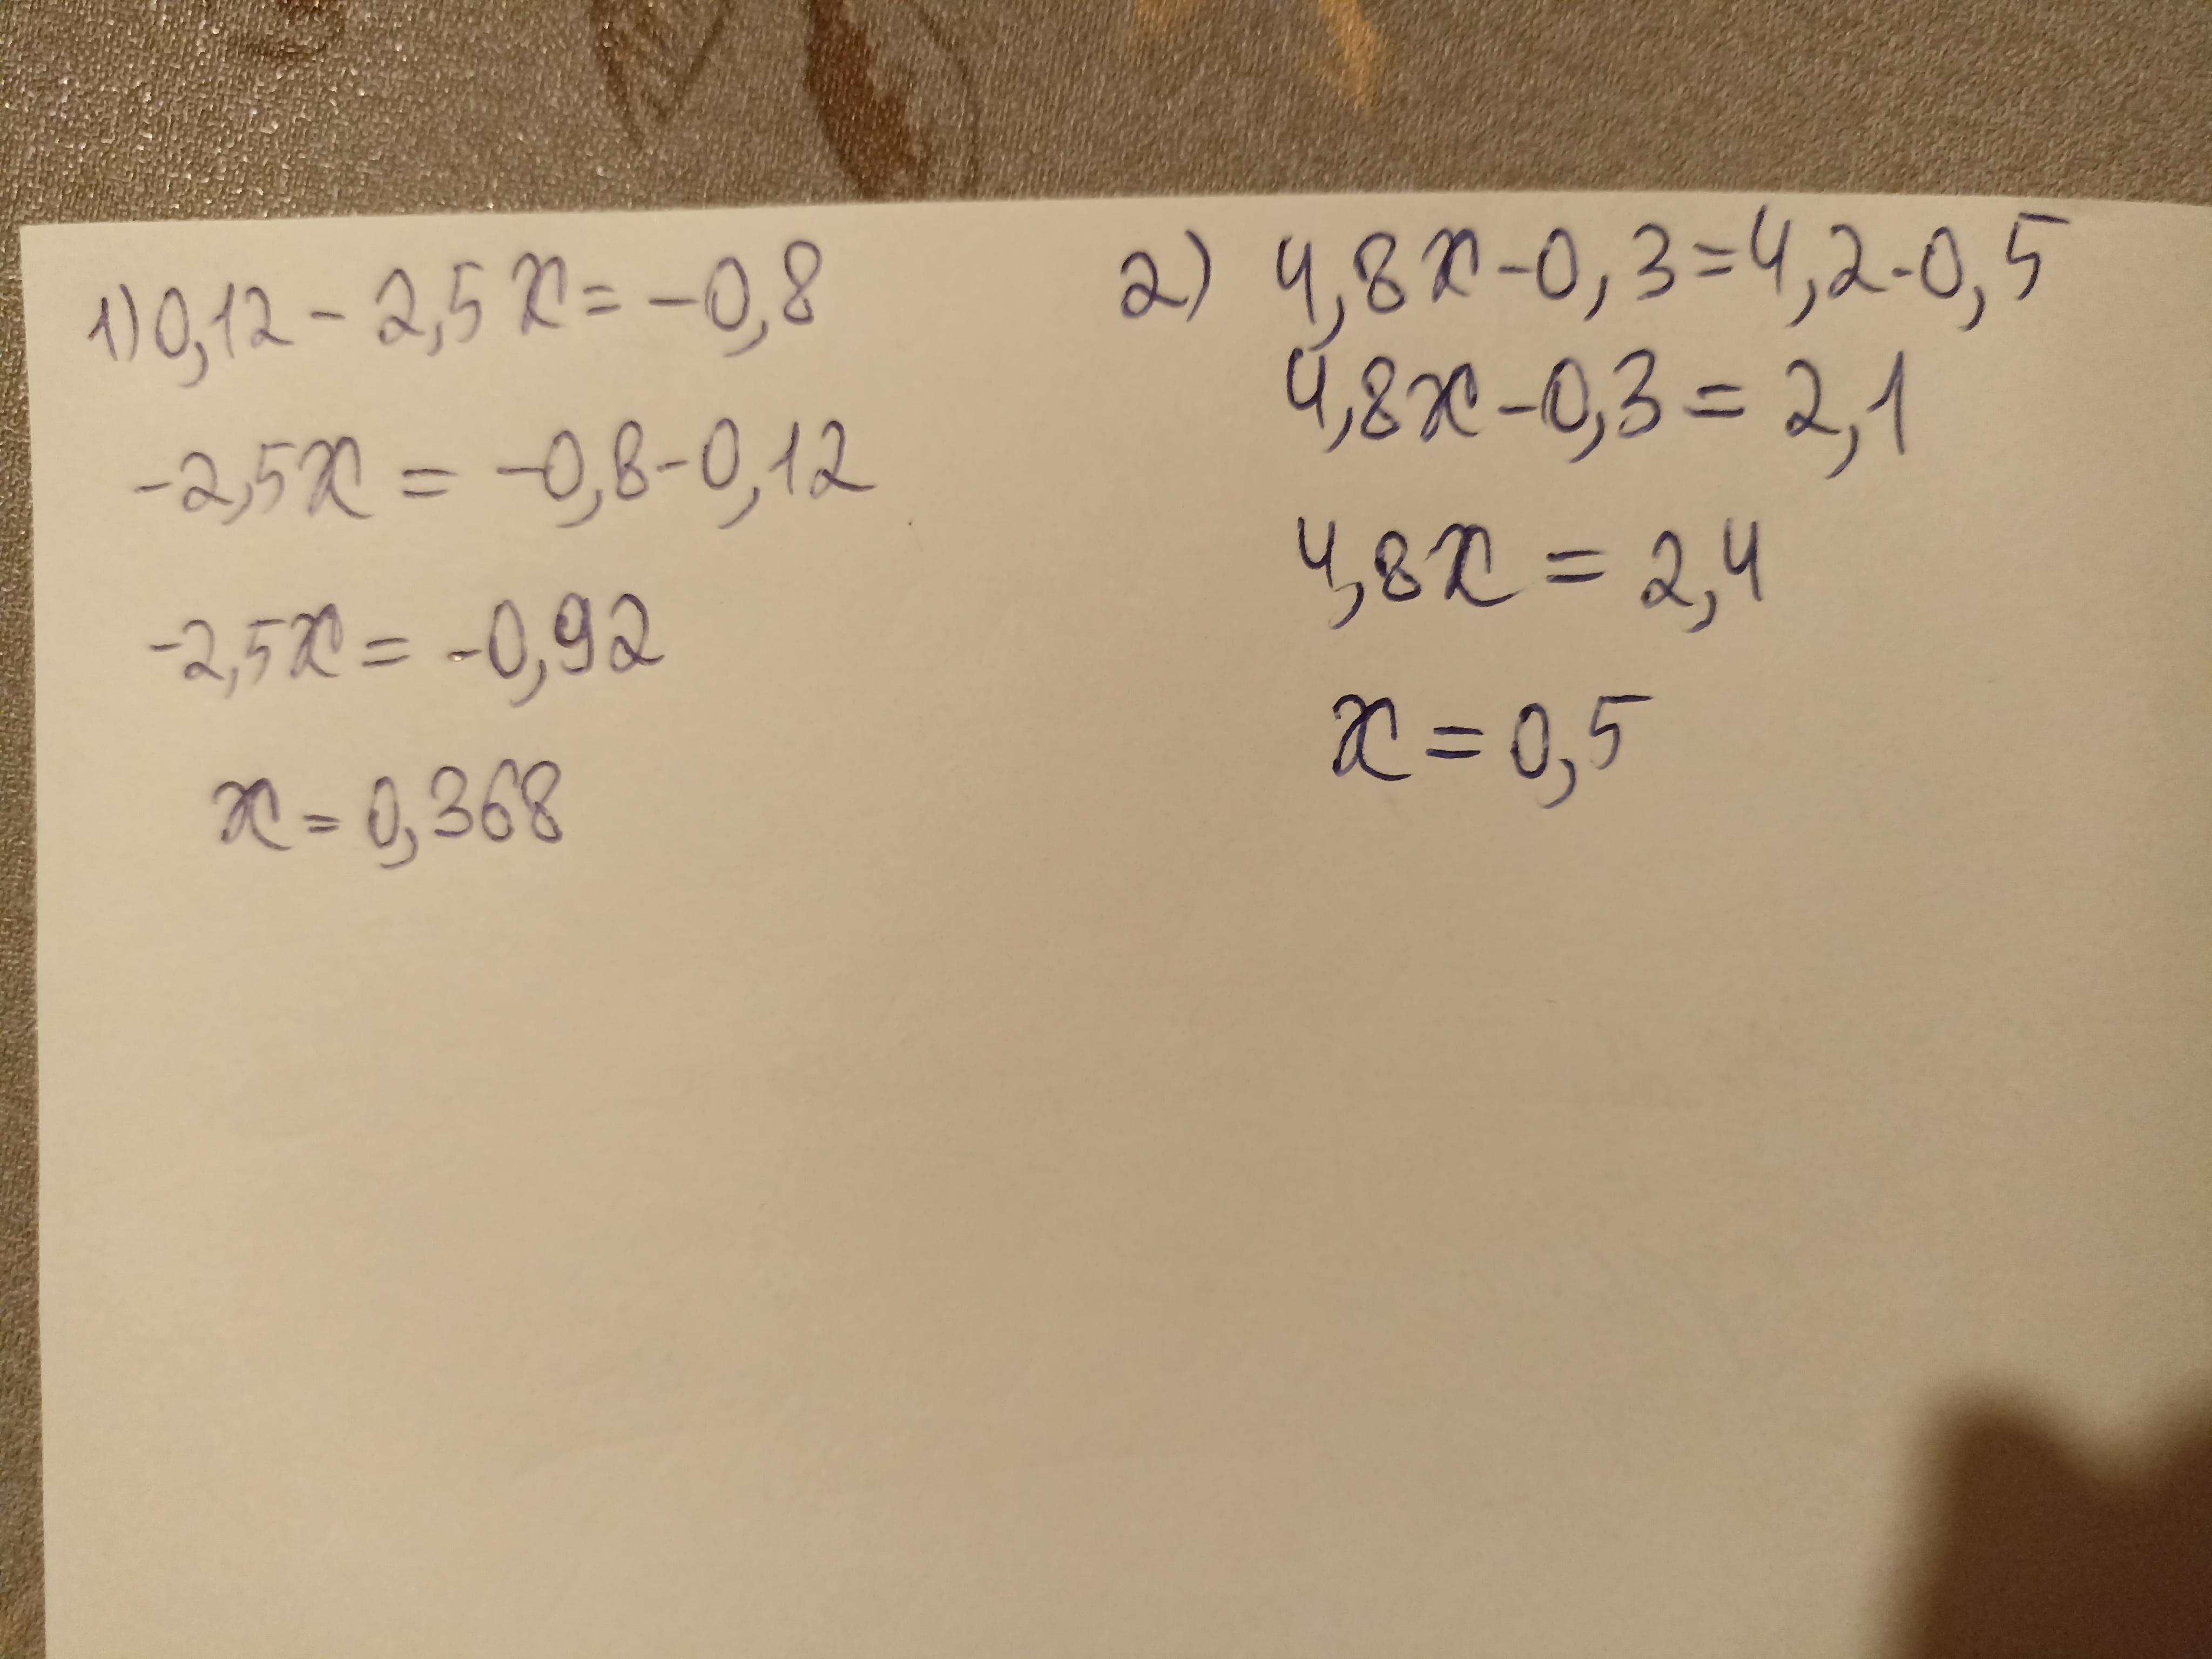 1) 0,12 - 2,5x = -0,8
-2,5x = -0,8-0,12
-2,5x = -0,92
x = 0,368
2) 4,8x-0,3=4,2·0,5
4,8x-0,3 = 2,1
4,8x = 2,4
x = 0,5